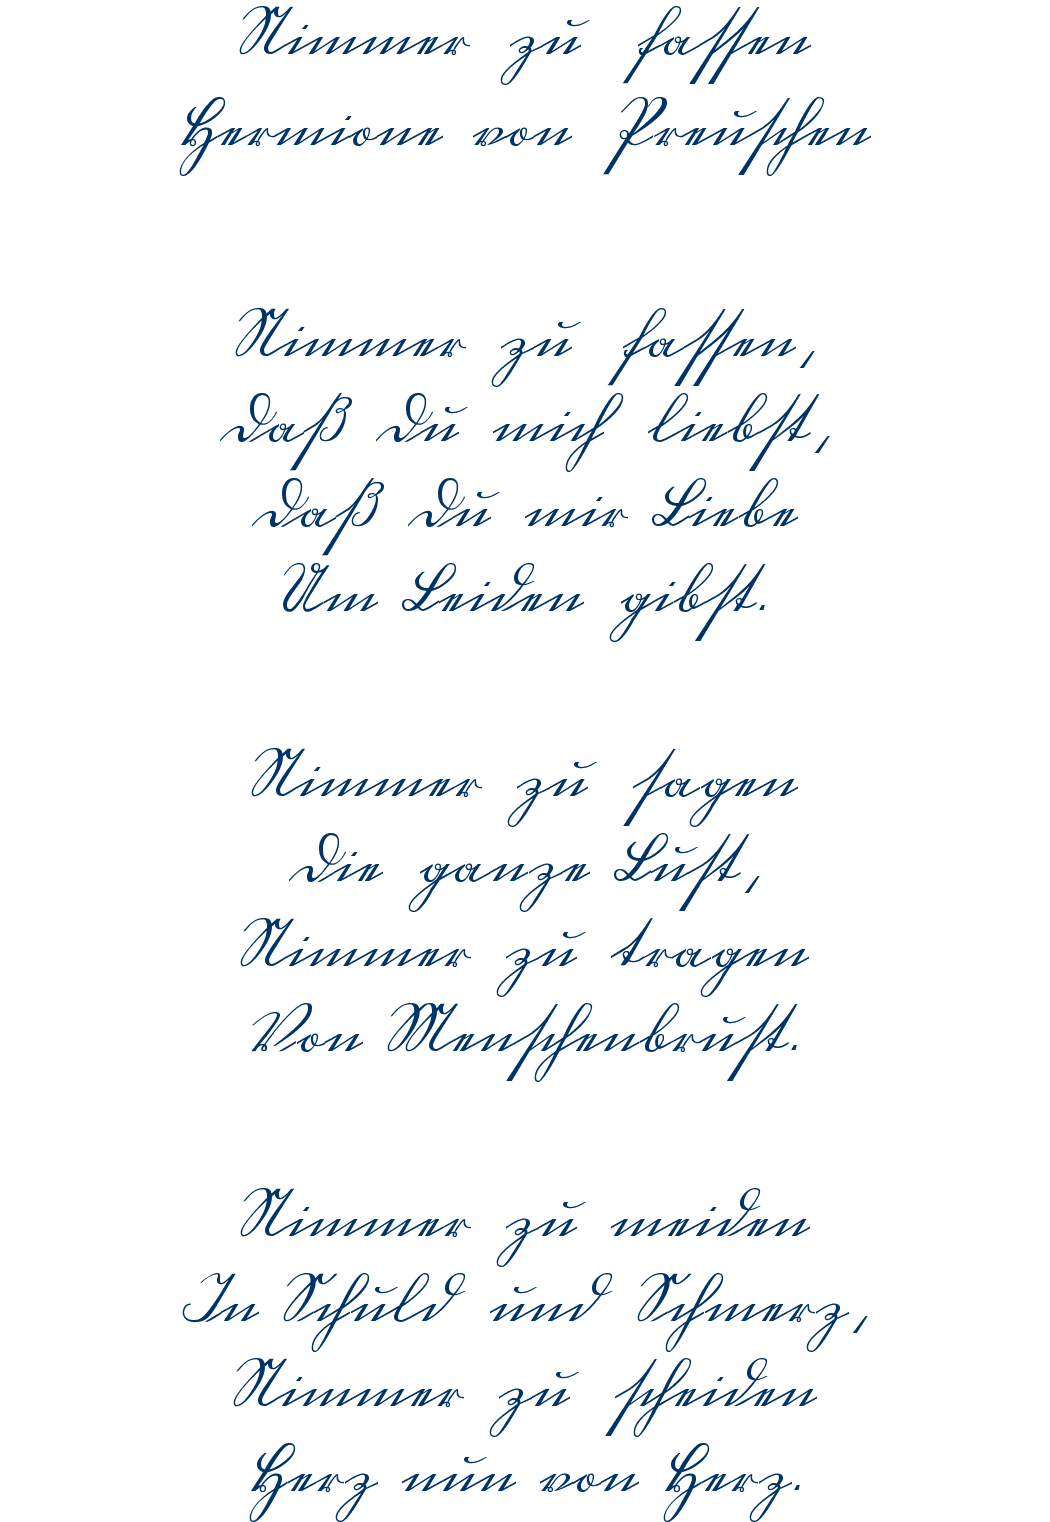 Nimmer zu fassen
Hermione von Preuschen
Nimmer zu fassen,
Daß Du mich liebst,
Daß Du mir Liebe
Um Leiden gibst.
Nimmer zu sagen
Die ganze Lust,
Nimmer zu tragen
Von Menschenbrust.
Nimmer zu meiden
In Schuld und Schmerz,
Nimmer zu scheiden
Herz nun von Herz.